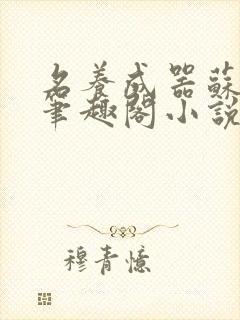 名養成器蘇
筆趣閣小說
穆青憶